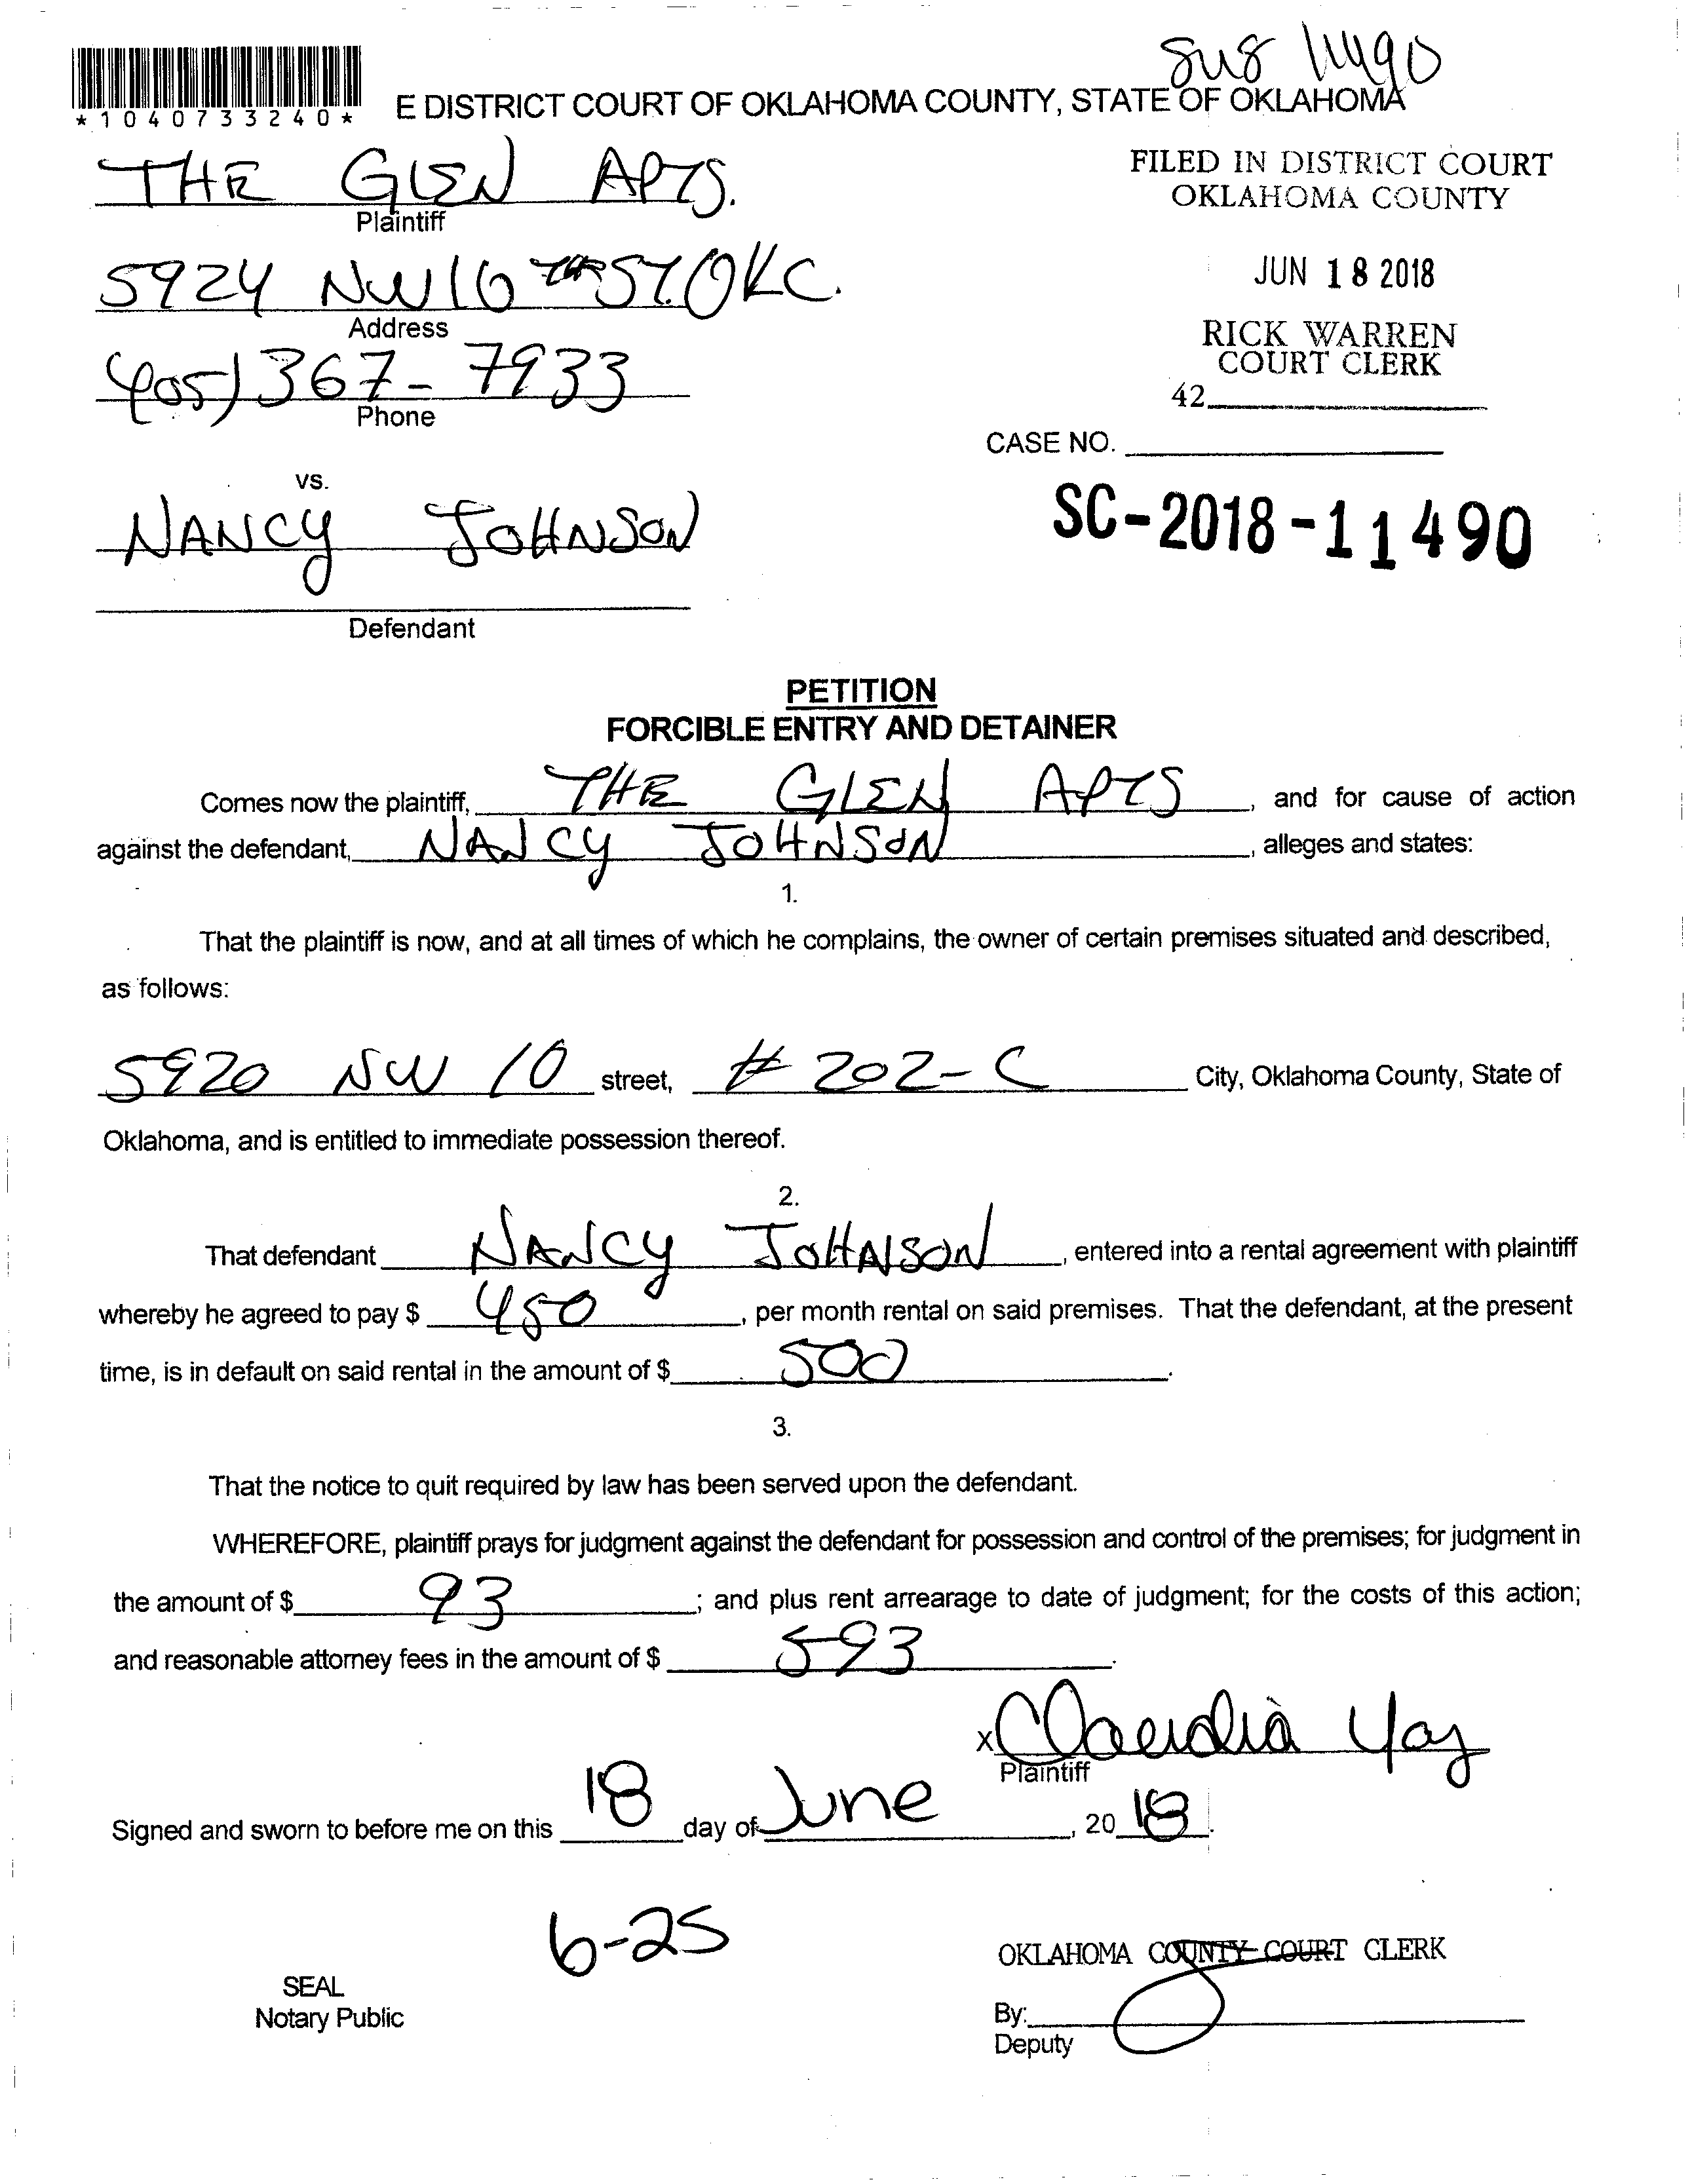 *1040733240*
E DISTRICT COURT OF OKLAHOMA COUNTY, STATE OF OKLAHOMA
THE GLEN APTS.
Plaintiff
FILED IN DISTRICT COURT
OKLAHOMA COUNTY
5924 NW 10 TH ST. OKC.
Address
JUN 18 2018
(405) 367-7933
Phone
RICK WARREN
COURT CLERK
42
CASE NO.
vs.
SC-2018-11490
NANCY JOHNSON
Defendant
PETITION
FORCIBLE ENTRY AND DETAINER
Comes now the plaintiff, THE GLEN APTS, and for cause of action
against the defendant, NANCY JOHNSON, alleges and states:
1.
That the plaintiff is now, and at all times of which he complains, the owner of certain premises situated and described,
as follows:
5920 NW 10 street, # 202-C City, Oklahoma County, State of
Oklahoma, and is entitled to immediate possession thereof.
2.
That defendant NANCY JOHNSON, entered into a rental agreement with plaintiff
whereby he agreed to pay $ 450, per month rental on said premises. That the defendant, at the present
time, is in default on said rental in the amount of $ 500.
3.
That the notice to quit required by law has been served upon the defendant.
WHEREFORE, plaintiff prays for judgment against the defendant for possession and control of the premises; for judgment in
the amount of $ 93; and plus rent arrearage to date of judgment; for the costs of this action;
and reasonable attorney fees in the amount of $ 593.
x Claudia Yaz
Plaintiff
Signed and sworn to before me on this 18 day of June, 20 18.
6-25
OKLAHOMA COUNTY COURT CLERK
SEAL
Notary Public
By:
Deputy